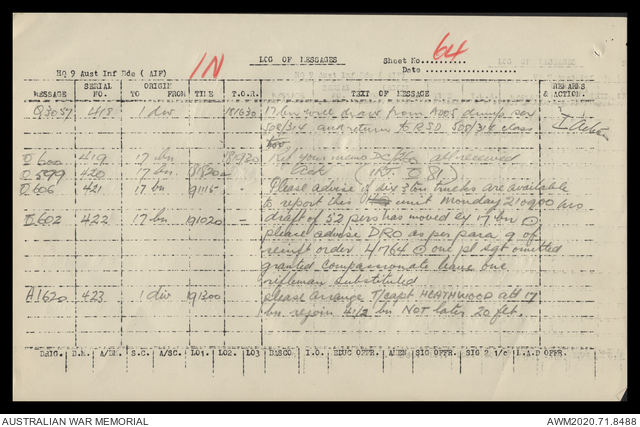 LOG OF MESSAGES
Sheet No.......... 64
HQ 9 Aust Inf Bde ( AIF)
IN
Date ......................
MESSAGE SERIAL NO. ORIGIN TO FROM TILE T.O.R. TEXT OF MESSAGE REMARKS & ACTION.
Q3057 418 1 div 181630 17 bn will draw from AOD dump ser
508/314 and return to RSD 508/314 class
two. I Action
O600 419 17 bn 181920 Ref your memo all received
O599 420 17 bn. Ack (1KT. O 81)
O606 421 17 bn 191115 - Please advise if div 3 ton trucks are available
to report this unit Monday 210900 hrs.
O602 422 17 bn 191020 - draft of 52 pers has moved ex 17 bn
please advise DRO as per para 9 of
reinft order 4764 one pl sgt omitted
granted compassionate leave one
rifleman substituted
A1620 423 1 div 191300 please arrange T/capt HEATHWOOD att 17
bn. rejoin 41/2 bn NOT later 20 feb.
ORIG. B.M. A/BM. S.C. A/SC. LO1. LO2. LO3 BASCO I.O. EDUC OFFR. AMEN SIG OFFR. SIG 2 i/c L.A.D OFFR.
AUSTRALIAN WAR MEMORIAL
AWM2020.71.8488